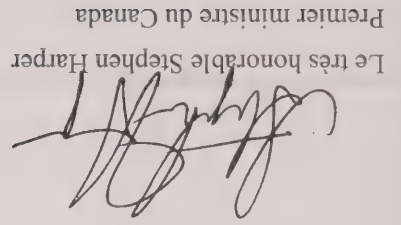 Le très honorable Stephen Harper
Premier ministre du Canada